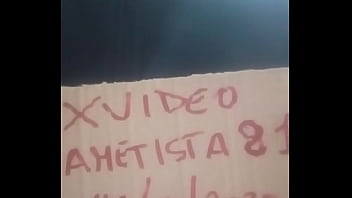 XVIDEO
AMETISTA 81